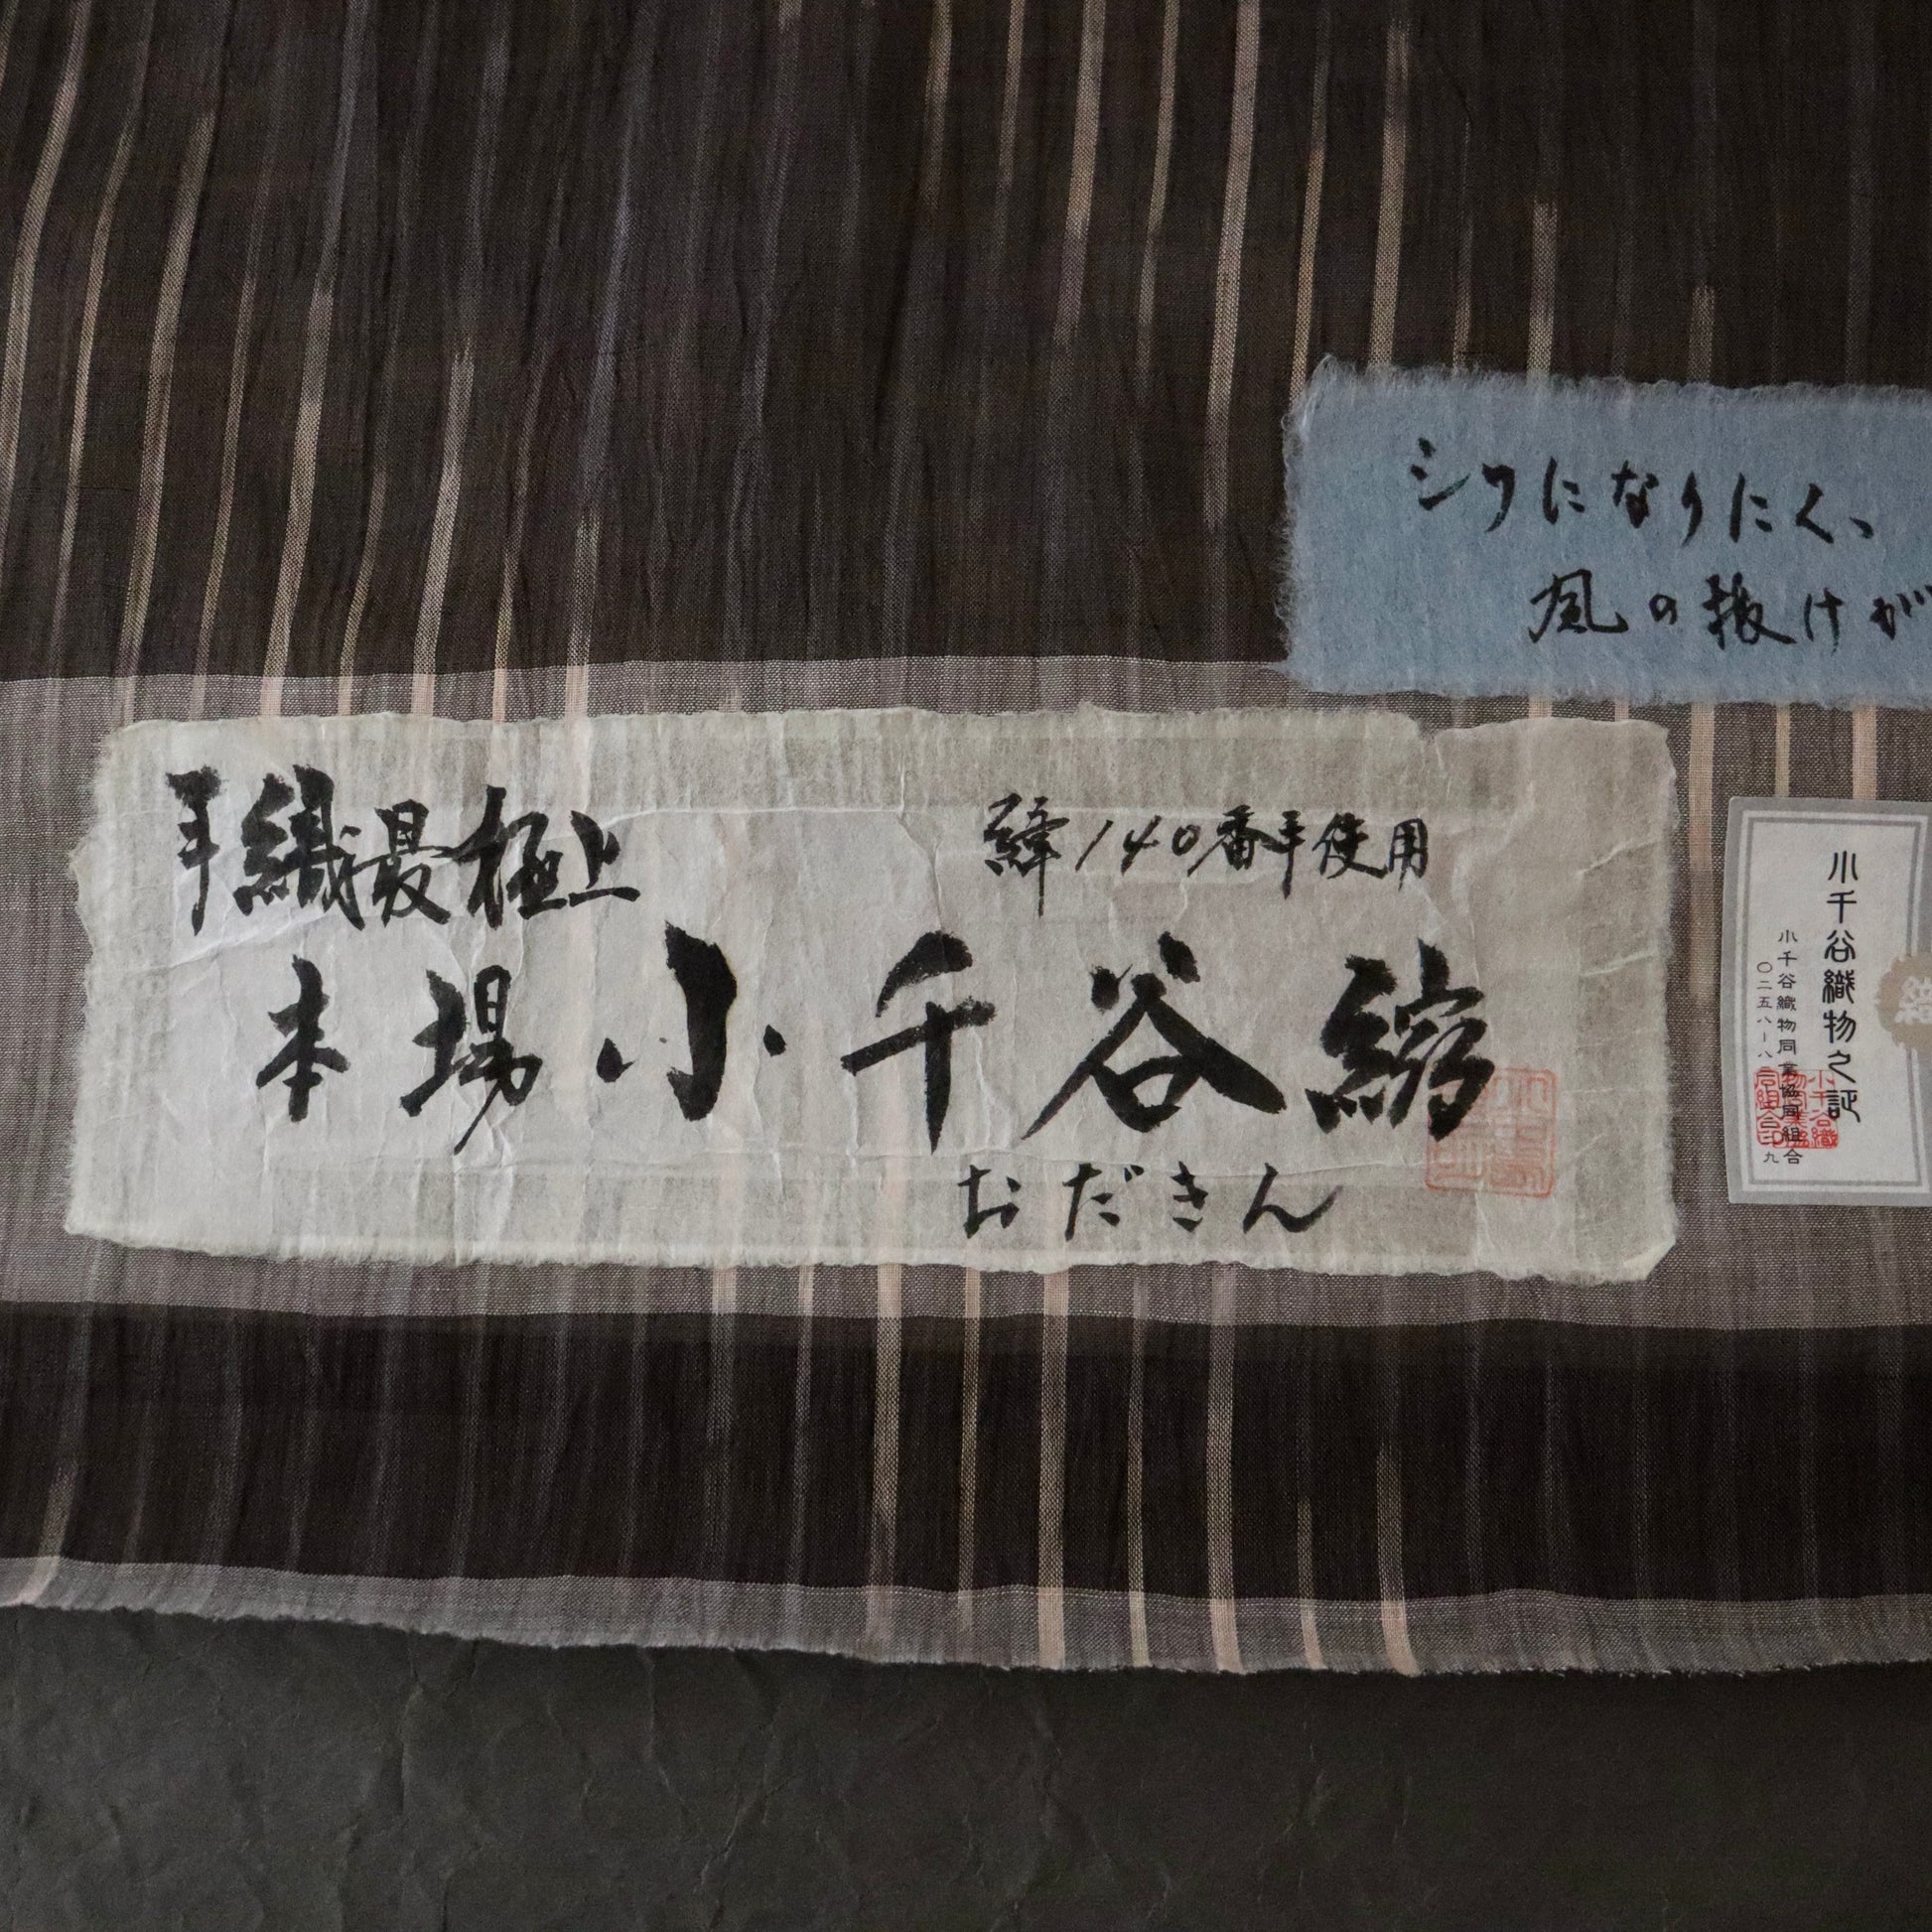 シワになりにく、
風の抜けが
手織最極上
緯140番手使用
本場小千谷縮
おだきん
小千谷織物之証
小千谷織物同業協同組合